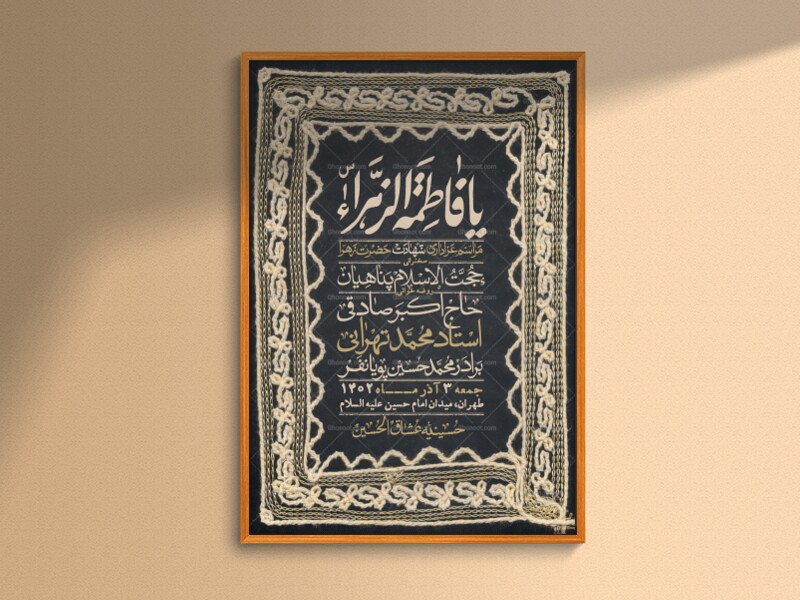 یا فاطِمَةَ الزَّهراءُ س
مراسم عزاداری شهادت حضرت زهرا
سخنرانی
حُجَّتُ الاِسلام پناهیان
روضه خوانی
حاج اکبر صادقی
استاد محمد تهرانی
برادر محمد حسین پویانفر
جمعه ۳ آذر مــاه ۱۴۰۲
طهران، میدان امام حسین علیه السلام
حسینیه عشاق الحسین